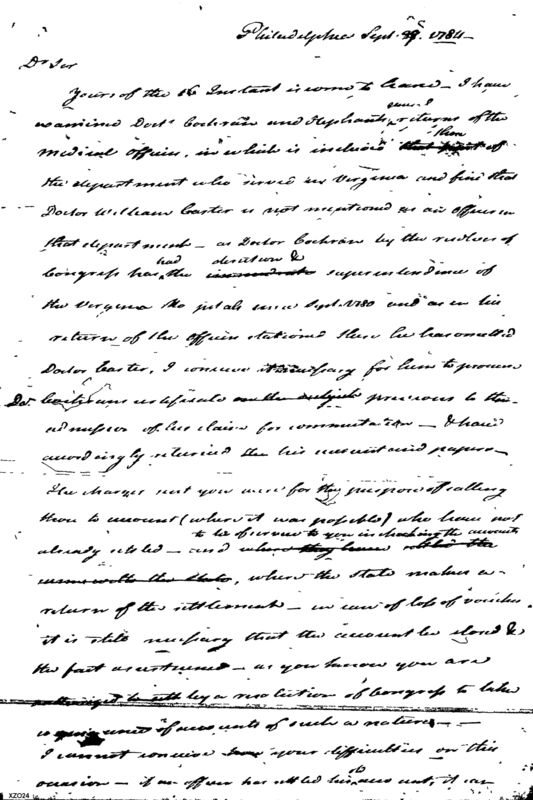 Philadelphia Sept. 29. 1784 -
Dr Sir
Yours of the 16 Instant is come to hand - I have
examined Doctr Cochran and Stephants, several returns of the
medical officers, in which is included them of
the department who served in Virginia and find that
Doctor William Carter is not mentioned as an officer in
that department - as Doctor Cochran by the resolves of
Congress has had the direction & superintendence of
the Virginia Hospitals since Sept. 1780 and as in his
return of the officers stationed there he has omitted
Doctor Carter, I conceive it necessary for him to procure
Dr. Cochrans certificate on the subject previous to the
admission of his claim for commutation - & have
accordingly returned the his account and papers -
The charges sent you were for the purpose of calling
them to account (where it was possible) who have not
already settled - and to be of service to you in checking the accounts
where the State makes a
return of the settlement - in case of loss of vouchers
it is still necessary that the account be closed &
the fact ascertained - as you know you are
by a resolution of Congress to take
of accounts of such a nature -
I cannot conceive your difficulties on this
occasion - if an officer has settled his account, it can
XZO24